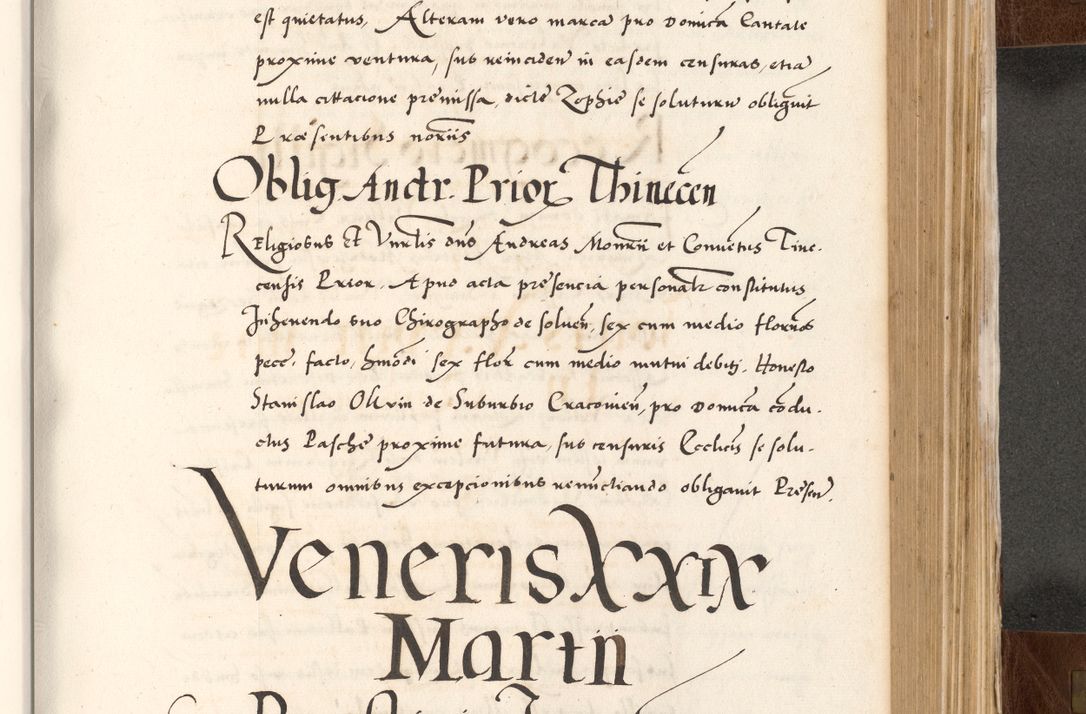 est quietatus, Alteram vero marcā pro Domīca Cantate
proxime ventura, sub reinciden̄ in easdem censuras, etiā
nulla cittacione premissa, dicte Zophie se soluturū obligauit
Præsentibus notrijs
Oblig Andr. Prior Thinecen̄
Religiosus Et Vnrlis dn̄s Andreas Monrij et Conuētus Tine-
censis Prior, Apud acta presencia personalr constitutus
Inherendo suo Chirographo de soluen̄, sex cum medio florn̄os
pecc. facto, hmōdi sex flor cum medio mutui debiti, Honesto
Stanislao Olvin de Suburbio Cracouien̄, pro Domīca cōdu-
ctus Pasche proxime futura, sub censuris Ecclicis se solu-
turum omnibus excepcionibus renūctiando obligauit Presen̄.
Veneris XXIX
Martii